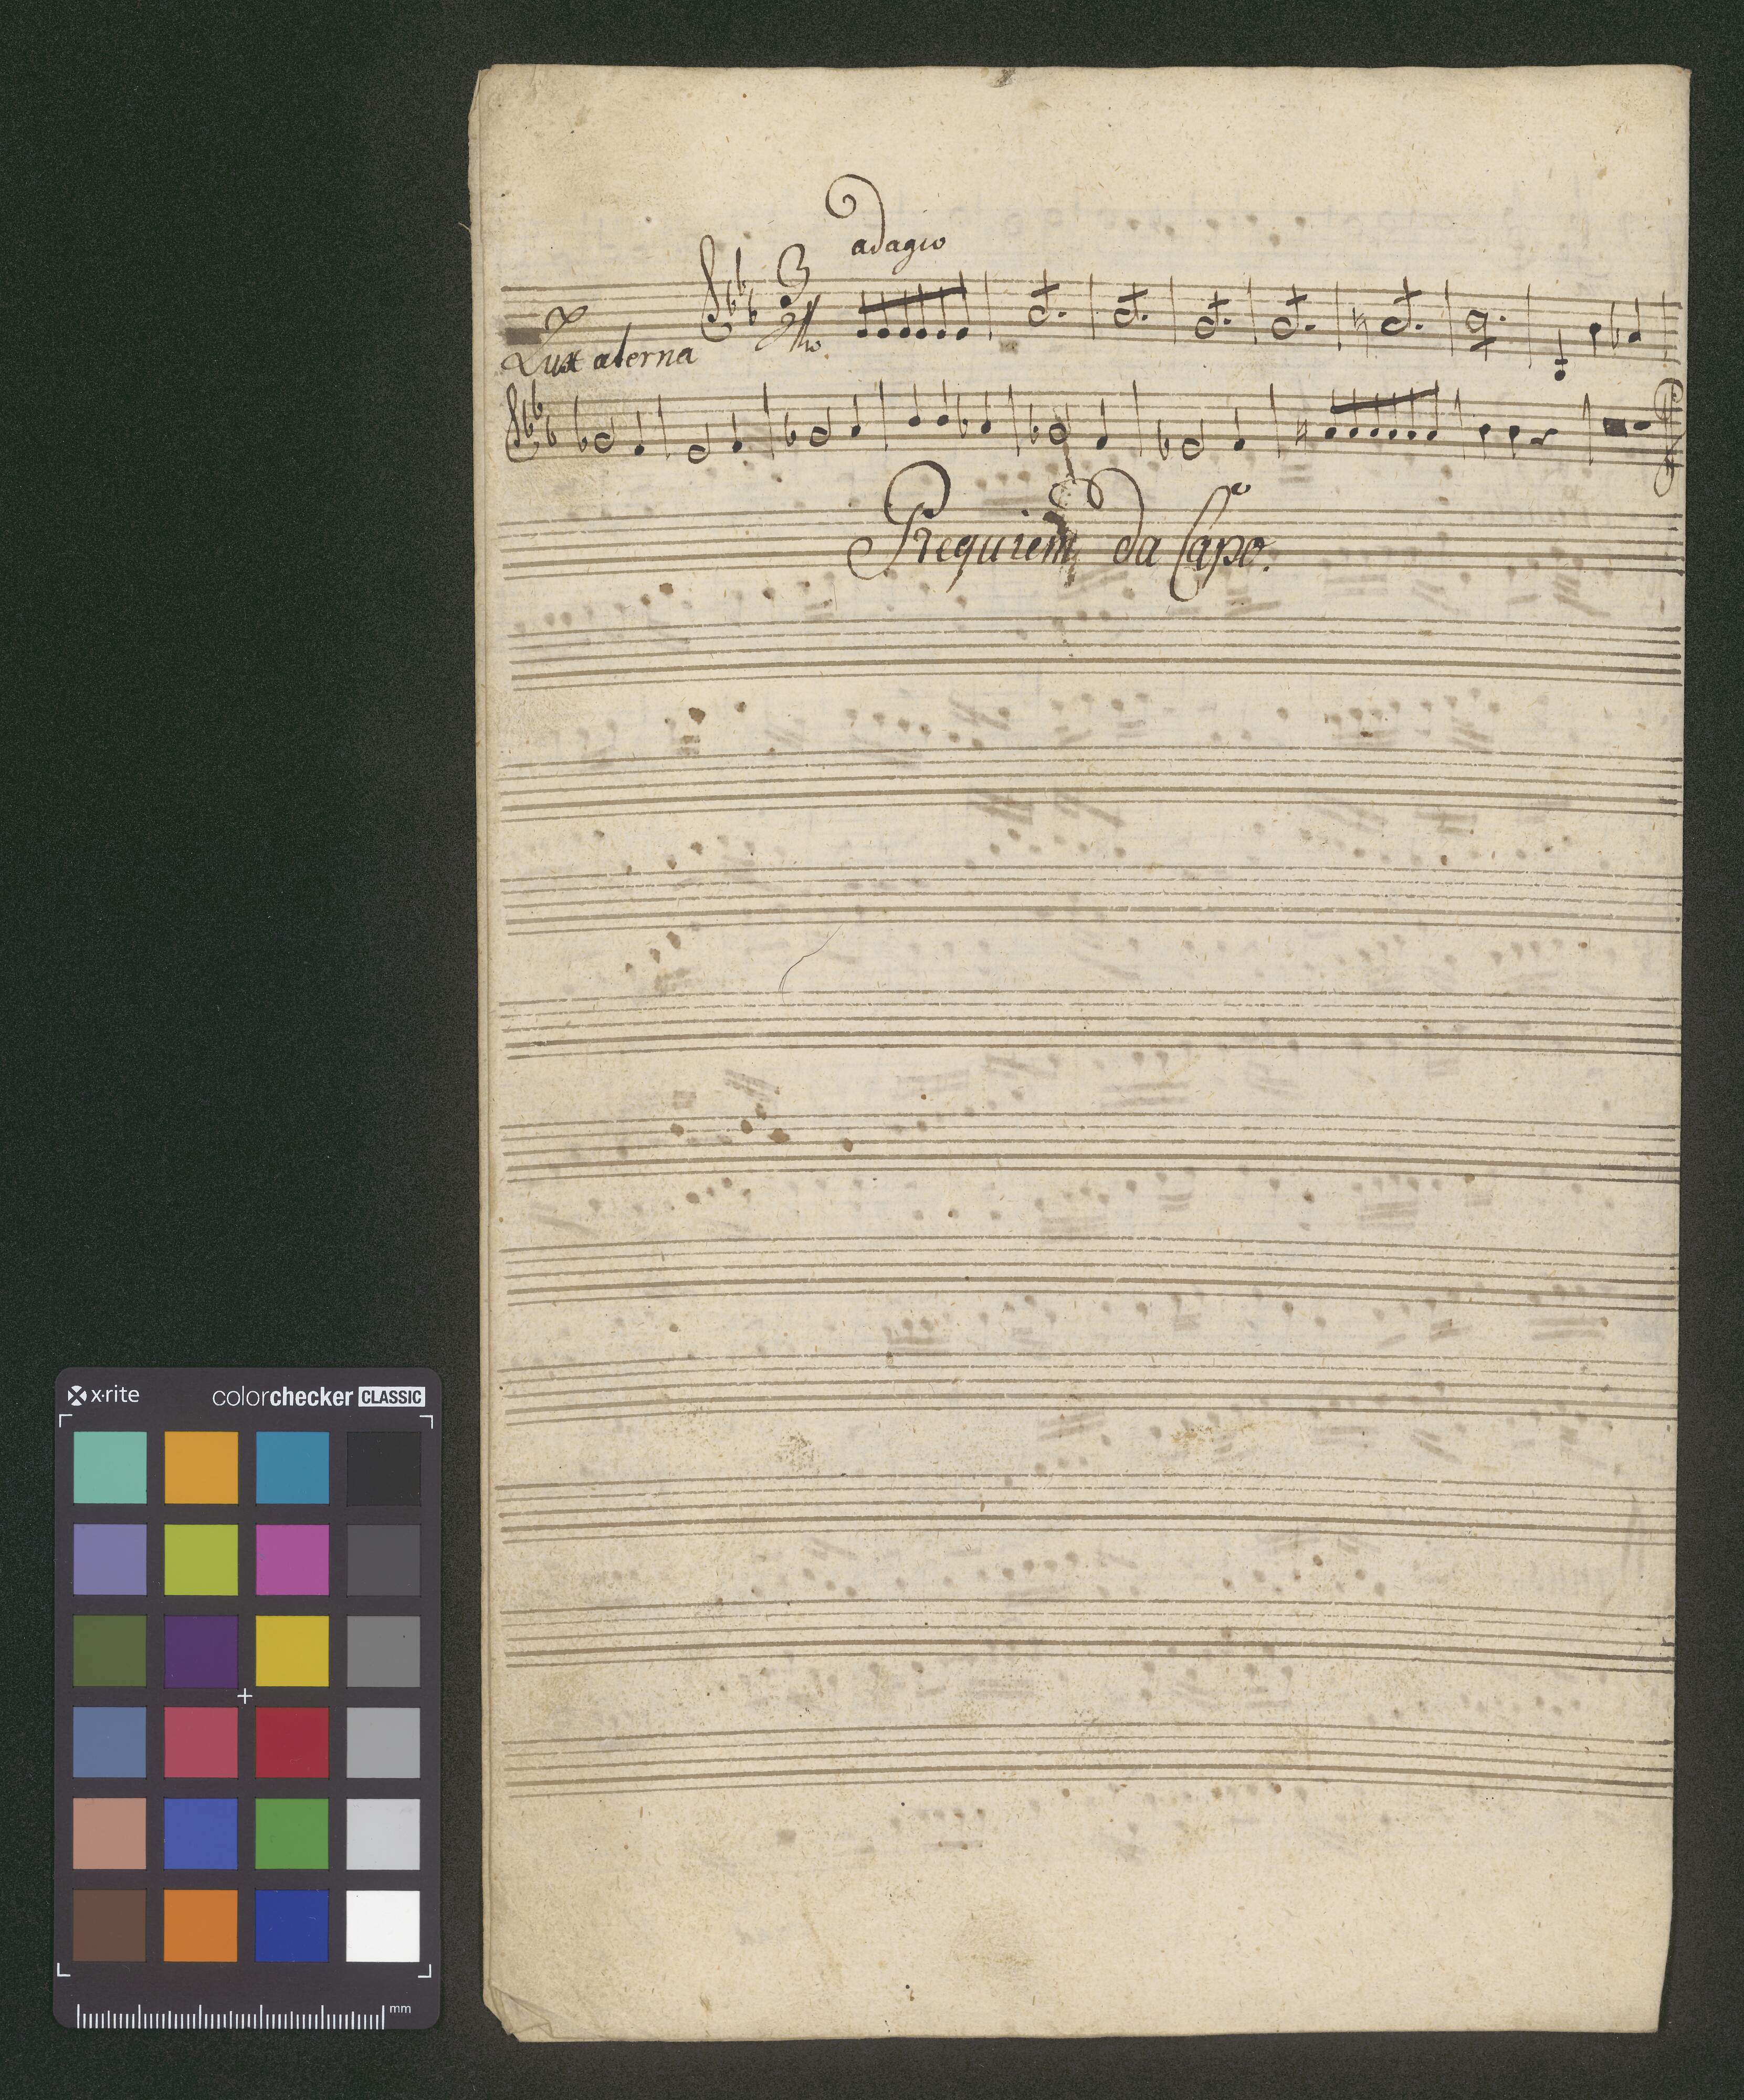 adagio
Lux æterna
Requiem da Capo.
x·rite colorchecker CLASSIC
mm